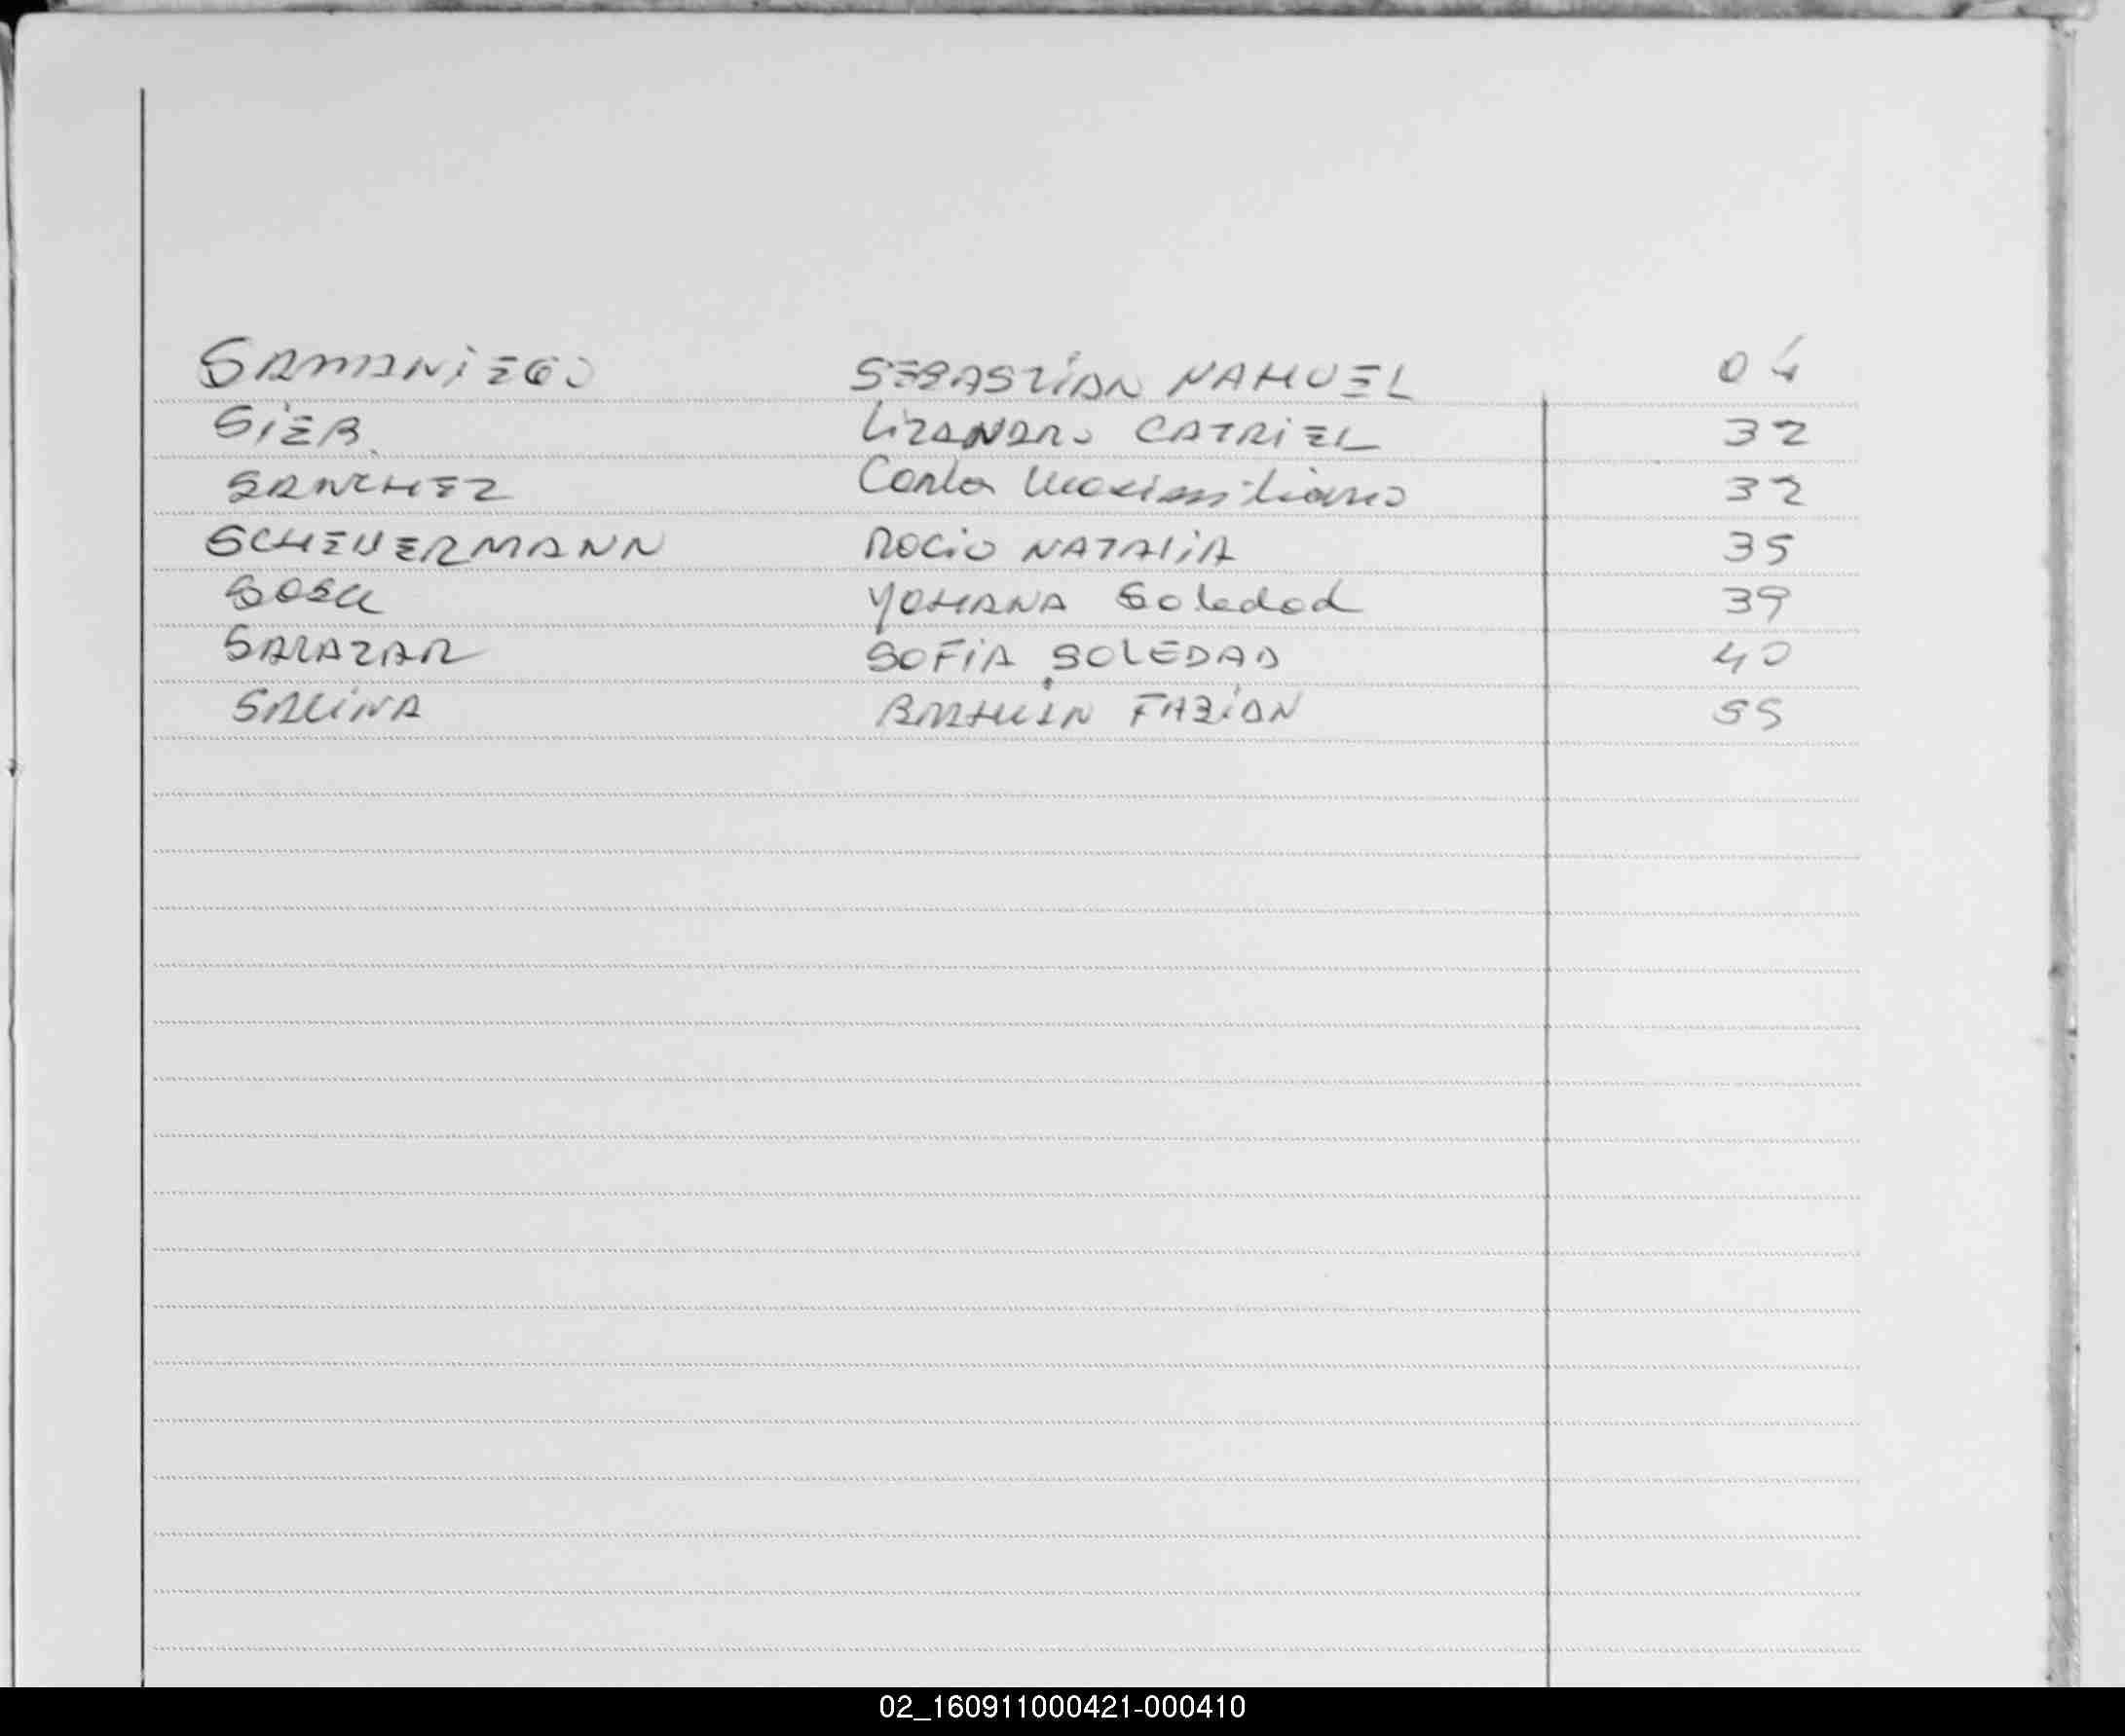 SAMANiEGO SEBASTiAN NAHUEL 04
SiER LizANDRO CATRiEL 32
SANCHEZ Carlos Maximiliano 32
SCHEUERMANN ROCiO NATALiA 35
SOSA YOHANA Soledad 39
SALAZAR SOFiA SOLEDAD 40
SALiNA FABiAN 55
02_160911000421-000410